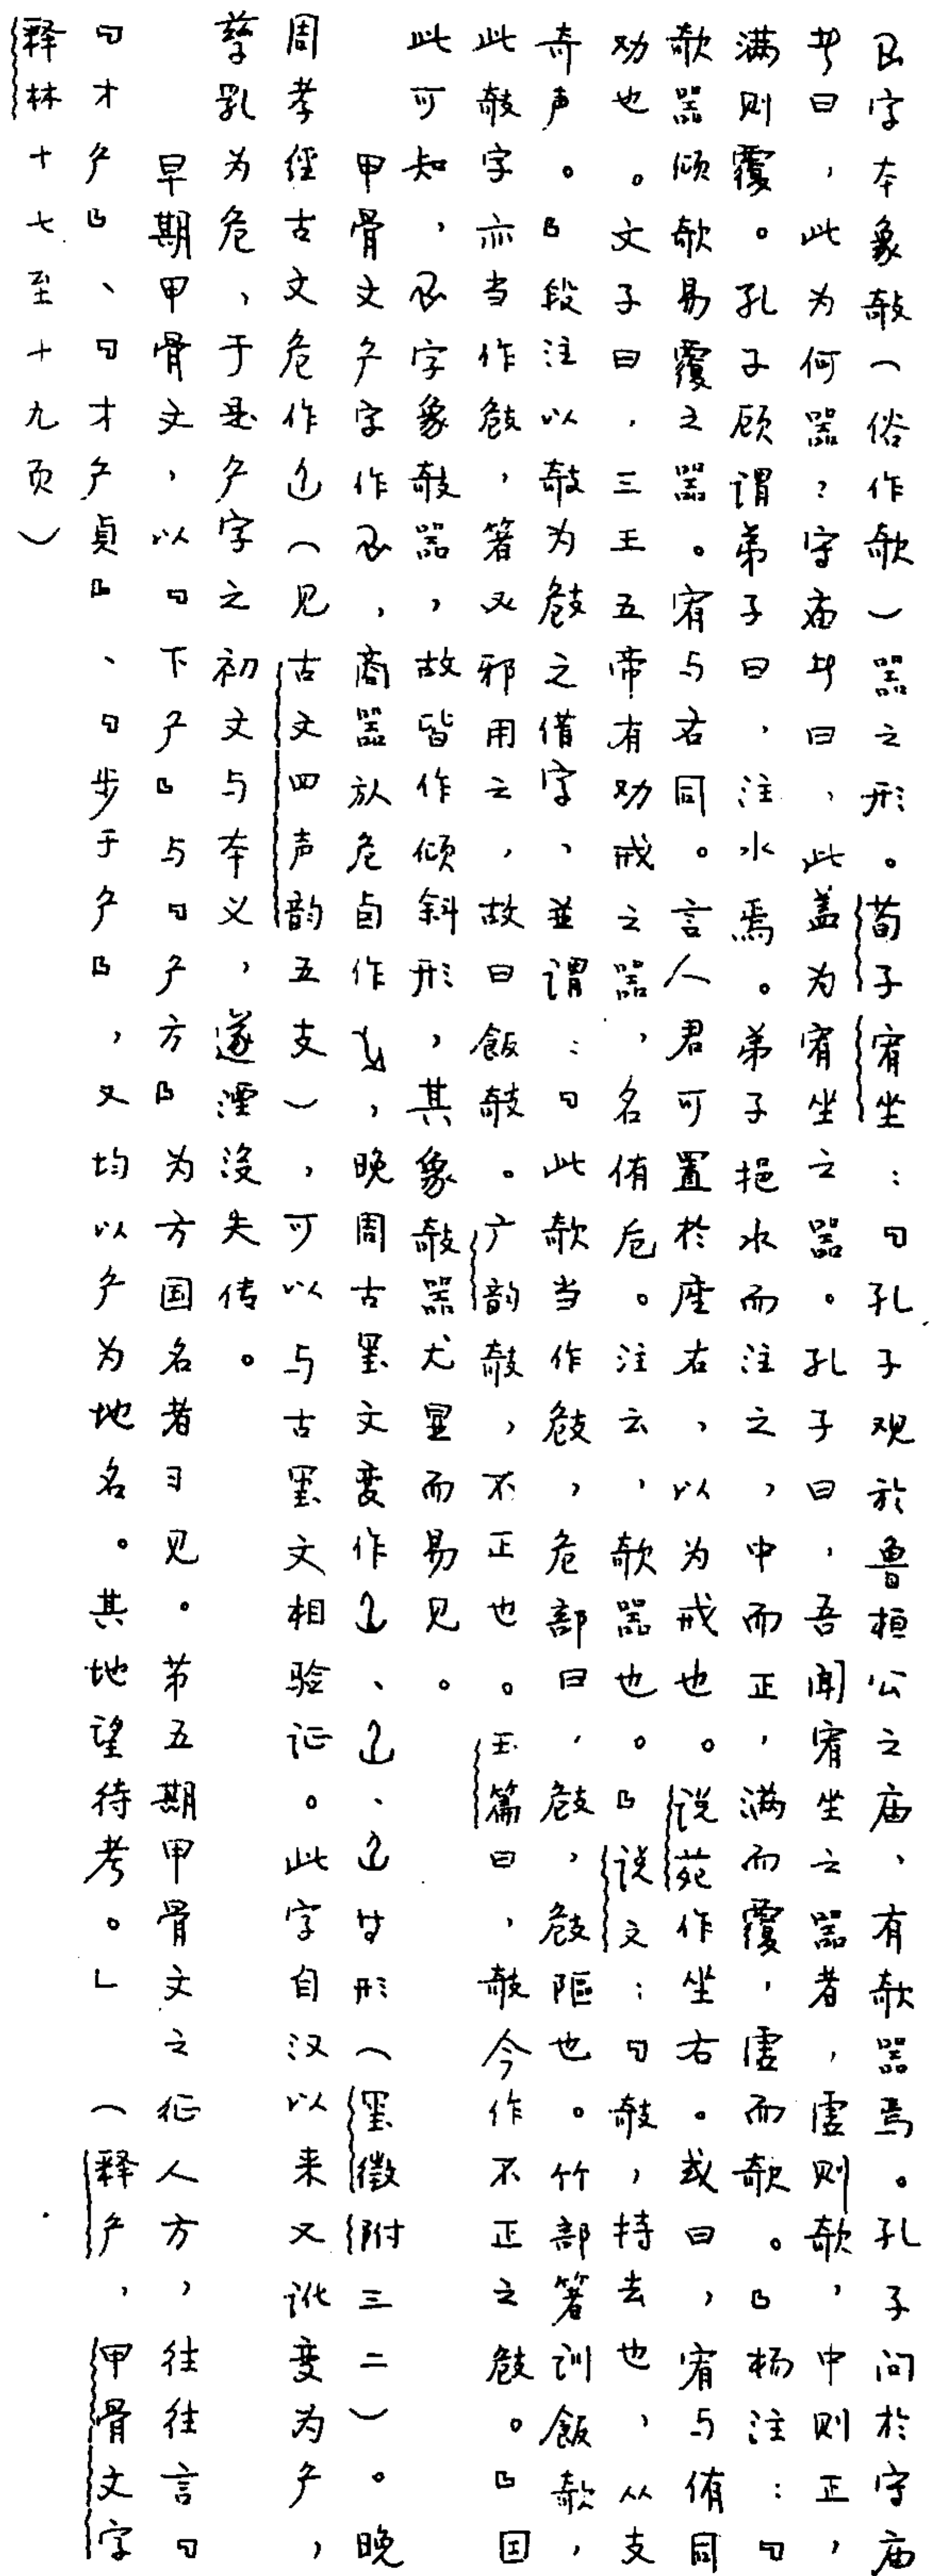 字本象敧（俗作欹）器之形。荀子宥坐：「孔子观於鲁桓公之庙，有欹器焉。孔子问於守庙
者曰，此为何器？守庙者曰，此盖为宥坐之器。孔子曰，吾闻宥坐之器者，虚则欹，中则正，
满则覆。孔子顾谓弟子曰，注水焉。弟子挹水而注之，中而正，满而覆，虚而欹。」杨注：「
欹器倾欹易覆之器。宥与右同。言人君可置於座右，以为戒也。说苑作坐右。或曰，宥与侑同
劝也。文子曰，三王五帝有劝戒之器，名侑卮。注云，欹器也。」说文：「敧，持去也，从支
奇声。」段注以敧为㩻之借字，並谓：「此欹当作㩻，危部曰，㩻，㩻䧢也。竹部箸训飯欹，
此敧字亦当作㩻，箸必邪用之，故曰飯敧。广韵敧，不正也。玉篇曰，敧今作不正之㩻。」因
此可知，字象敧器，故皆作倾斜形，其象敧器尤显而易见。
甲骨文厃字作，商器放危卣作，晚周古玺文变作、、等形（玺徵附三二）。晚
周孝经古文危作（见古文四声韵五支），可以与古玺文相验证。此字自汉以来又讹变为厃，
孳乳为危，于是厃字之初文与本义，遂湮没失传。
早期甲骨文，以「下厃」与「厃方」为方国名者习见。第五期甲骨文之征人方，往往言「
「才厃」、「才厃貞」、「步于厃」，又均以厃为地名。其地望待考。」（释厃，甲骨文字
释林十七至十九页）